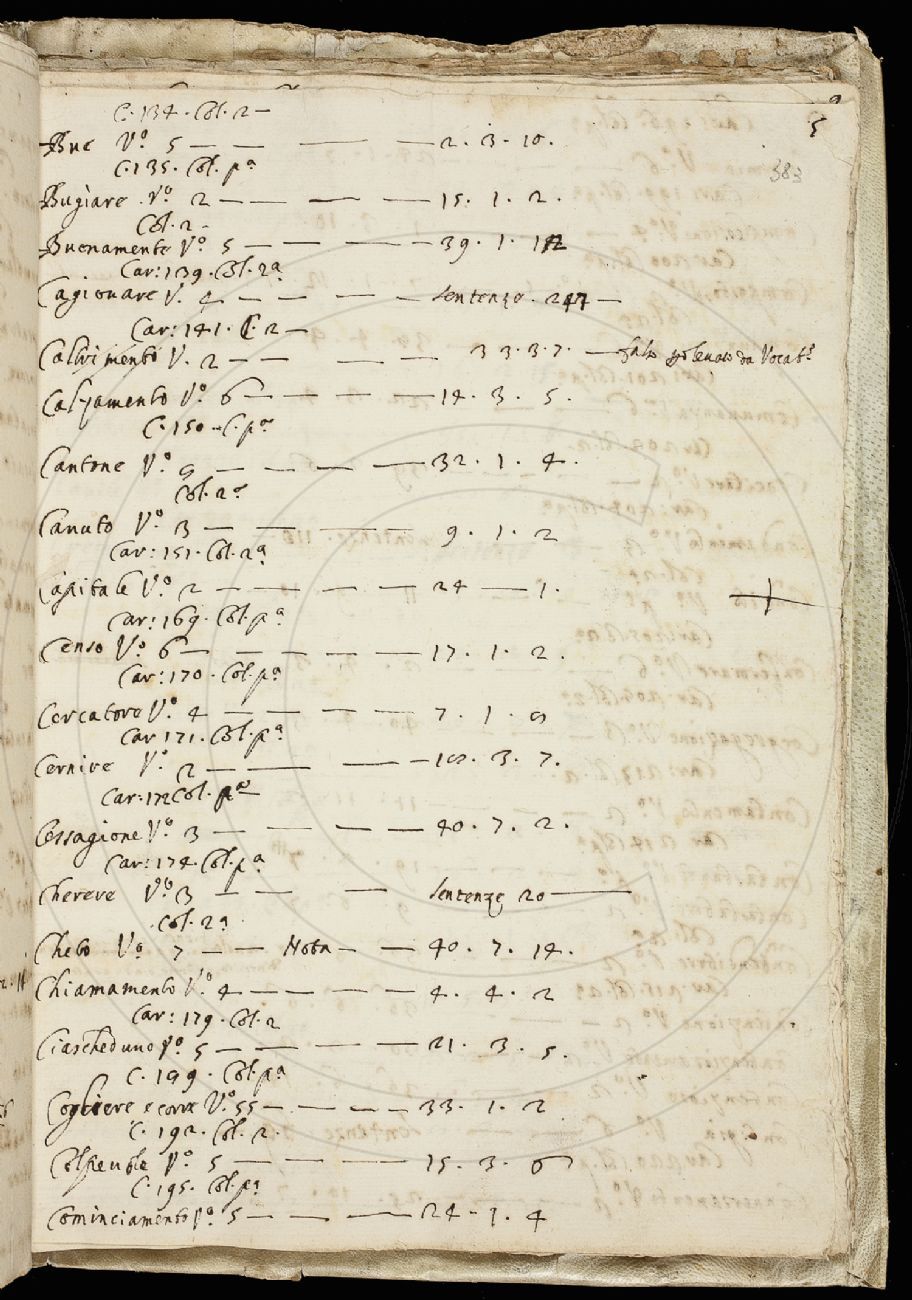 5
383
C. 134. Col. 2 —
Bue Vº 5 — — — — 2. 3. 10.
C. 135. Col. pª
Bugiare Vº 2 — — — — 15. 1. 2.
Col. 2 —
Buonamente Vº 5 — — — — 39. 1. 1
Car: 139. Col. 2ª
Cagionare V. 4 — — — — Sentenze. 247 —
Car: 141. C. 2 —
V. 2 — — — — 33. 3. 7. — da Vocabº
Calzamento Vº 6 — — — — 14. 3. 5.
C. 150 — C. pª
Cantone Vº 9 — — — — 32. 1. 4.
Col. 2ª
Canuto Vº 3 — — — 9. 1. 2
Car: 151. Col. 2ª
Capitale Vº 2 — — — — 24 — 1.
Car: 169. Col. pª
Censo Vº 6 — — — — 17. 1. 2.
Car: 170. Col. pª
Cercatore Vº 4 — — — — 7. 1. 9
Car 171. Col. pª
Cernire Vº 2 — — — — 3. 7.
Car. 172 Col. pª —
Cessagione Vº 3 — — — — 40. 7. 2.
Car: 174. Col. pª
Cherere Vº 3 — — — Sentenze 20 —
Col. 2ª
Vº 7 — — Nota — — 40. 7. 14.
Chiamamento Vº 4 — — — — 4. 4. 2
Car: 179. Col. 2
Ciascheduno Vº 5 — — — — 21. 3. 5.
C. 199. Col. pª
Cogliere e corre Vº 55 — — — — 33. 1. 2
C. 192. Col. 2.
Colpevole Vº 5 — — — — 15. 3. 6
C. 195. Col. pª
Cominciamento Vº 5 — — — 24 — 1. 4